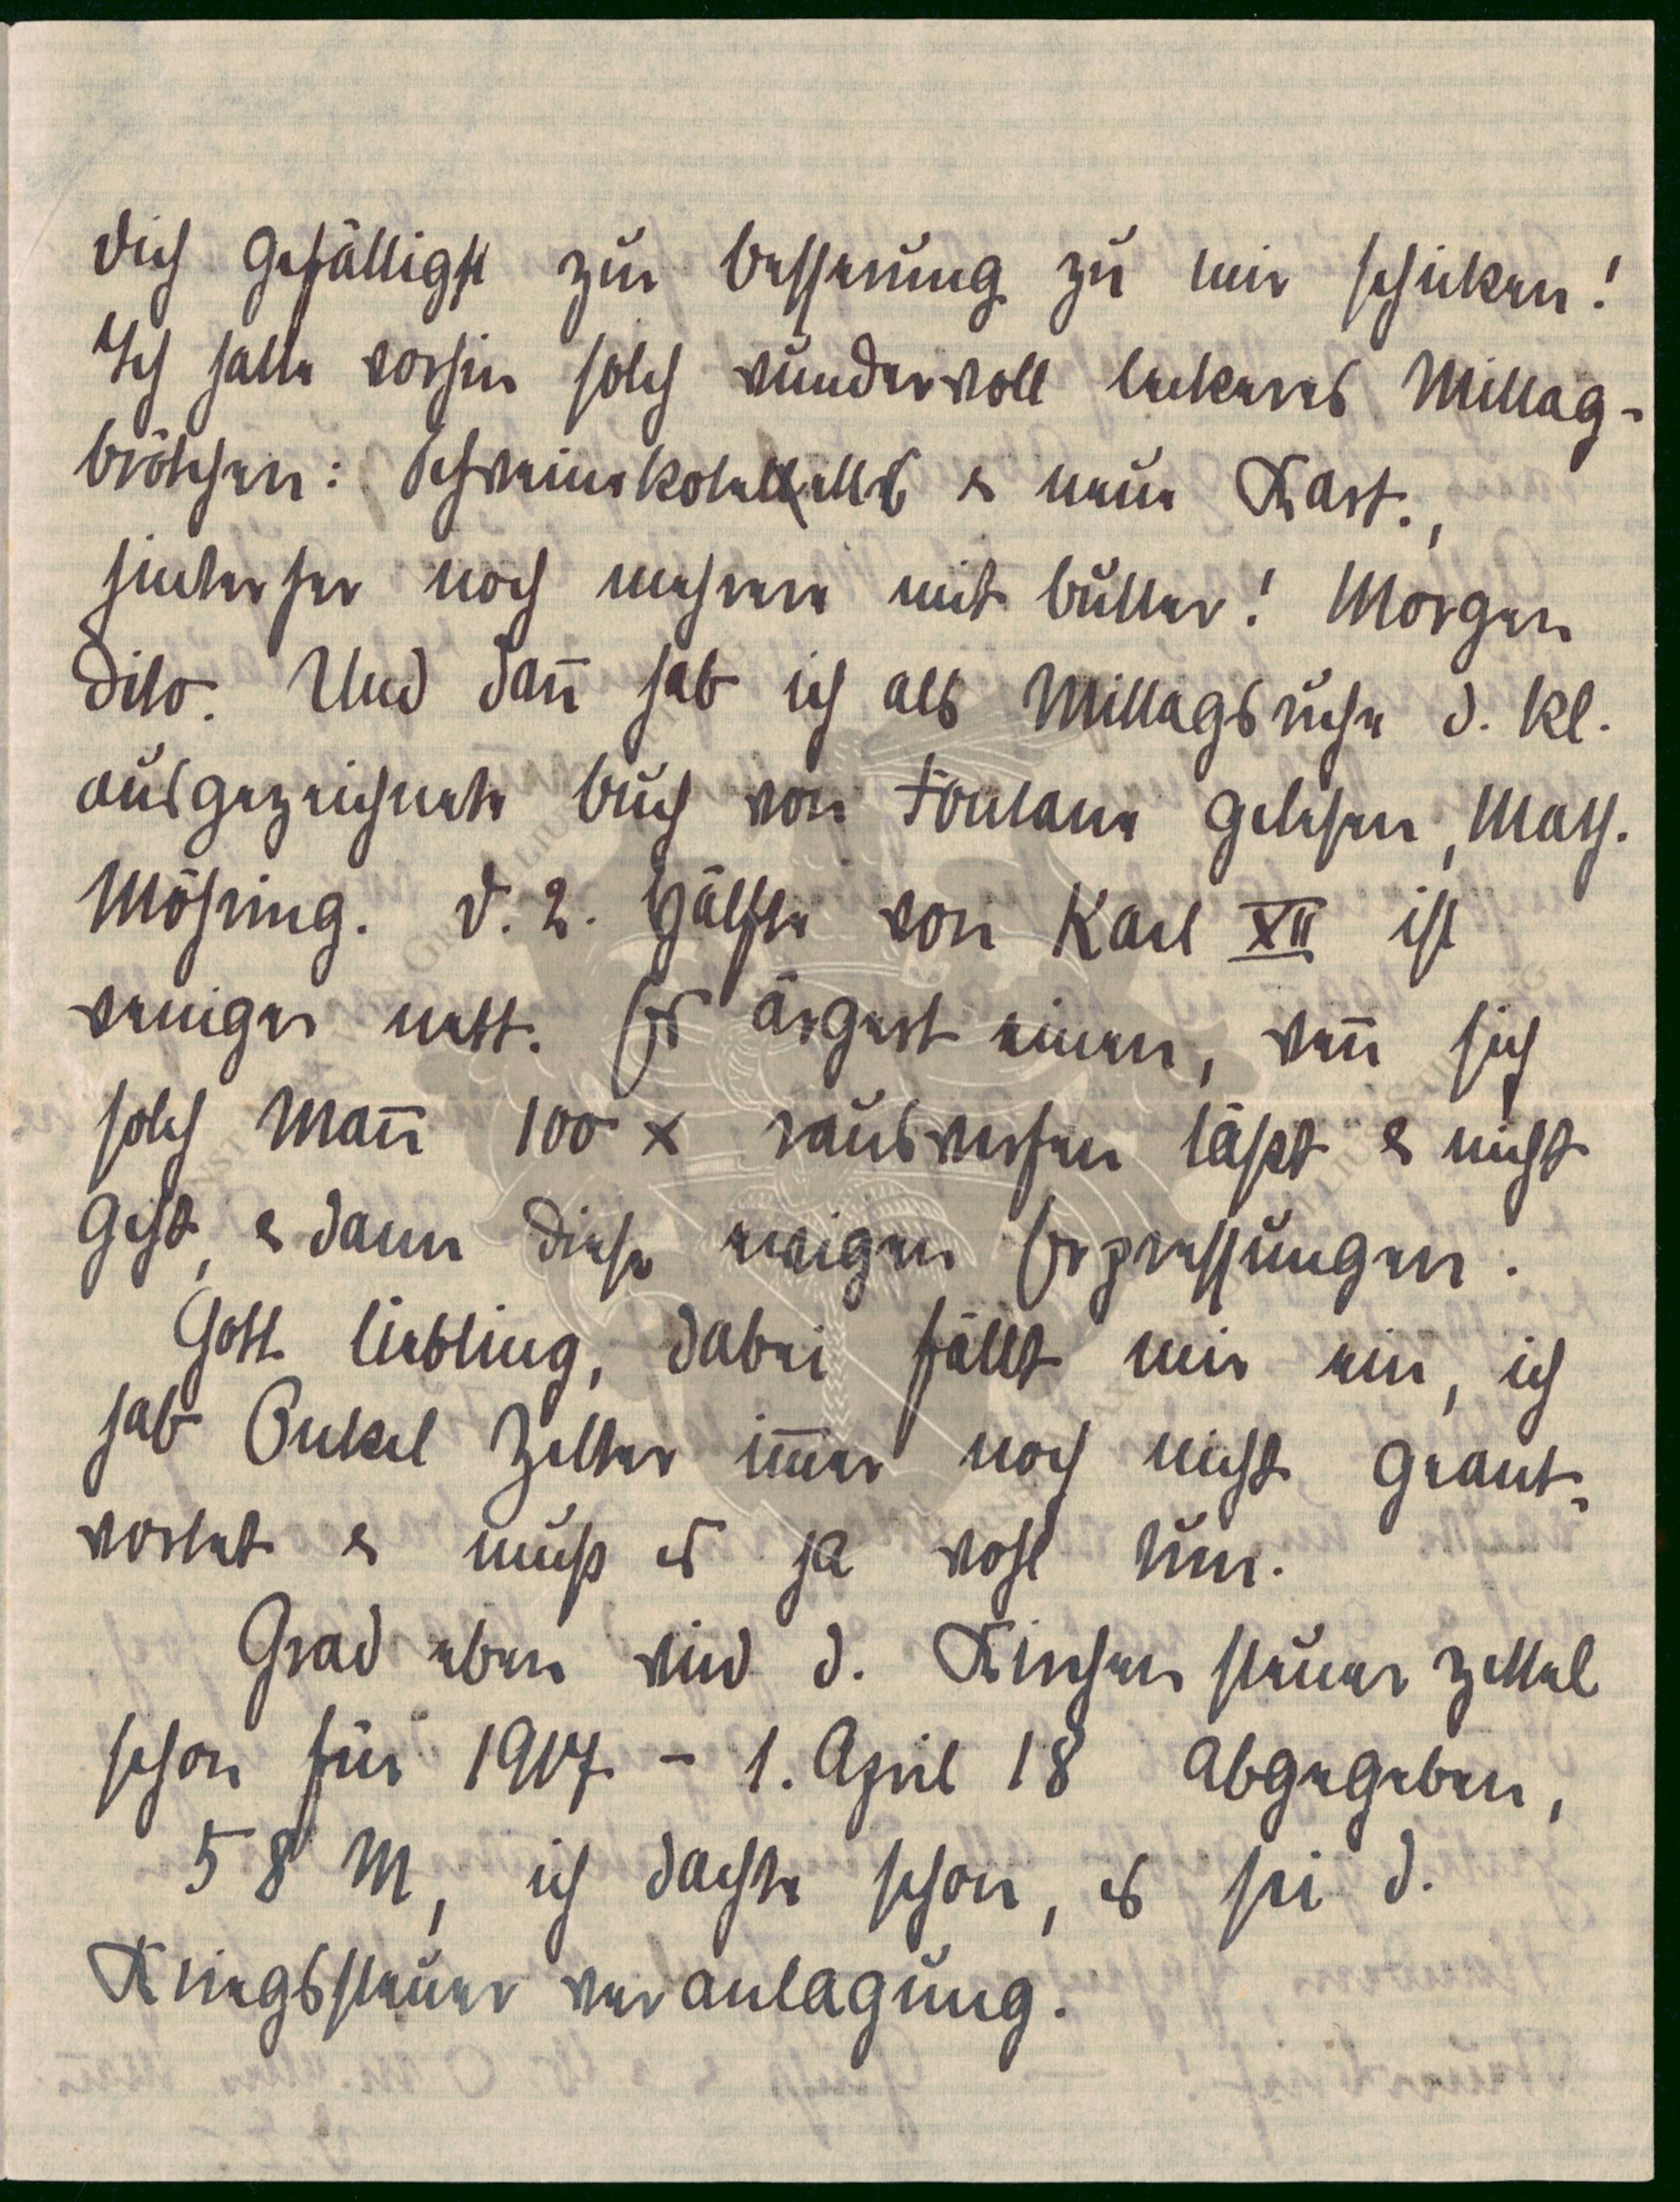 Dich gefälligst zur Besserung zu mir schicken!
Ich hatte vorhin solch wundervoll leckeres Mittag-
brötchen: Schweinskotelletts & neue Kart.,
hinterher noch mehrere mit Butter! Morgen
dito. Und dan̄ hab ich als Mittagsruhe d. kl.
ausgezeichnete Buch von Fontane gelesen, Math.
Möhring. D. 2. Hälfte von Karl XII ist
weniger nett. Es ärgert einen, wen̄ sich
solch Man̄ 100 x rauswerfen läßt & nicht
geht, & dann diese ewigen Erpressungen.
Gott Liebling, dabei fällt mir ein, ich
hab Onkel Zelter im̄er noch nicht geant-
wortet & muß es ja wohl tun.
Grad eben wird d. Kirchensteuerzettel
schon für 1917 - 1. April 18 abgegeben,
58 M, ich dachte schon, es sei d.
Kriegssteuerveranlagung.